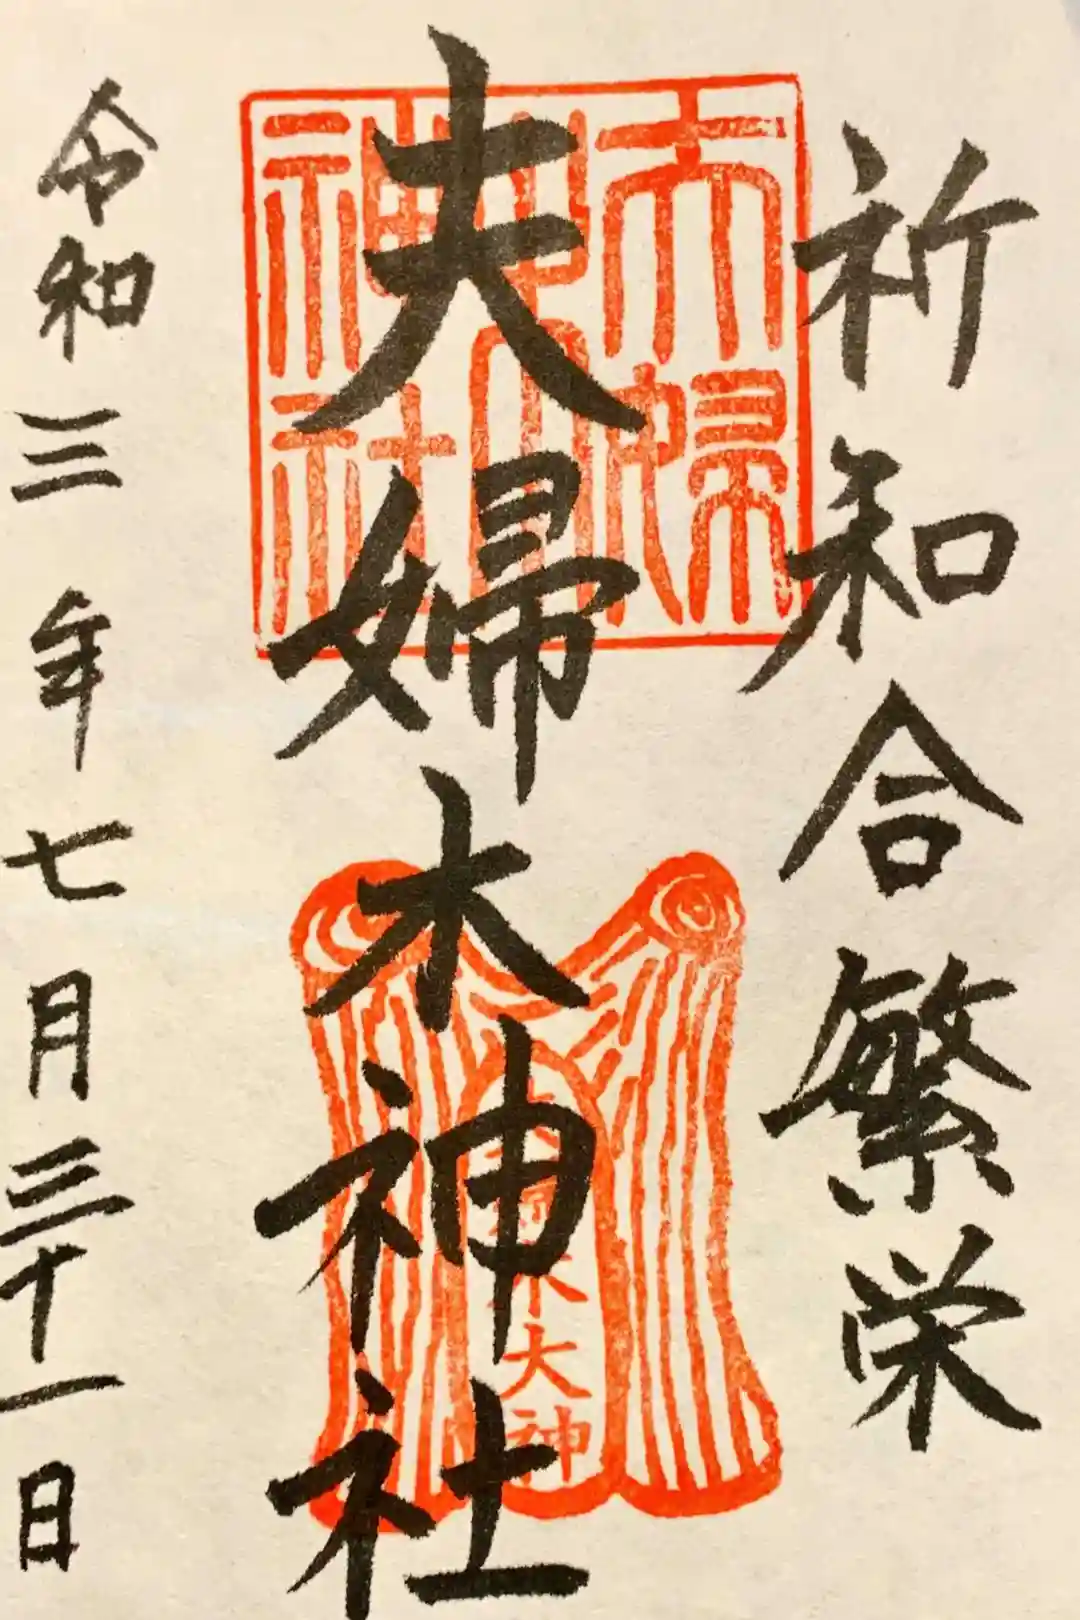 祈和合繁栄
夫婦木神社
令和三年七月三十一日
夫婦
木
神社
夫婦木大神